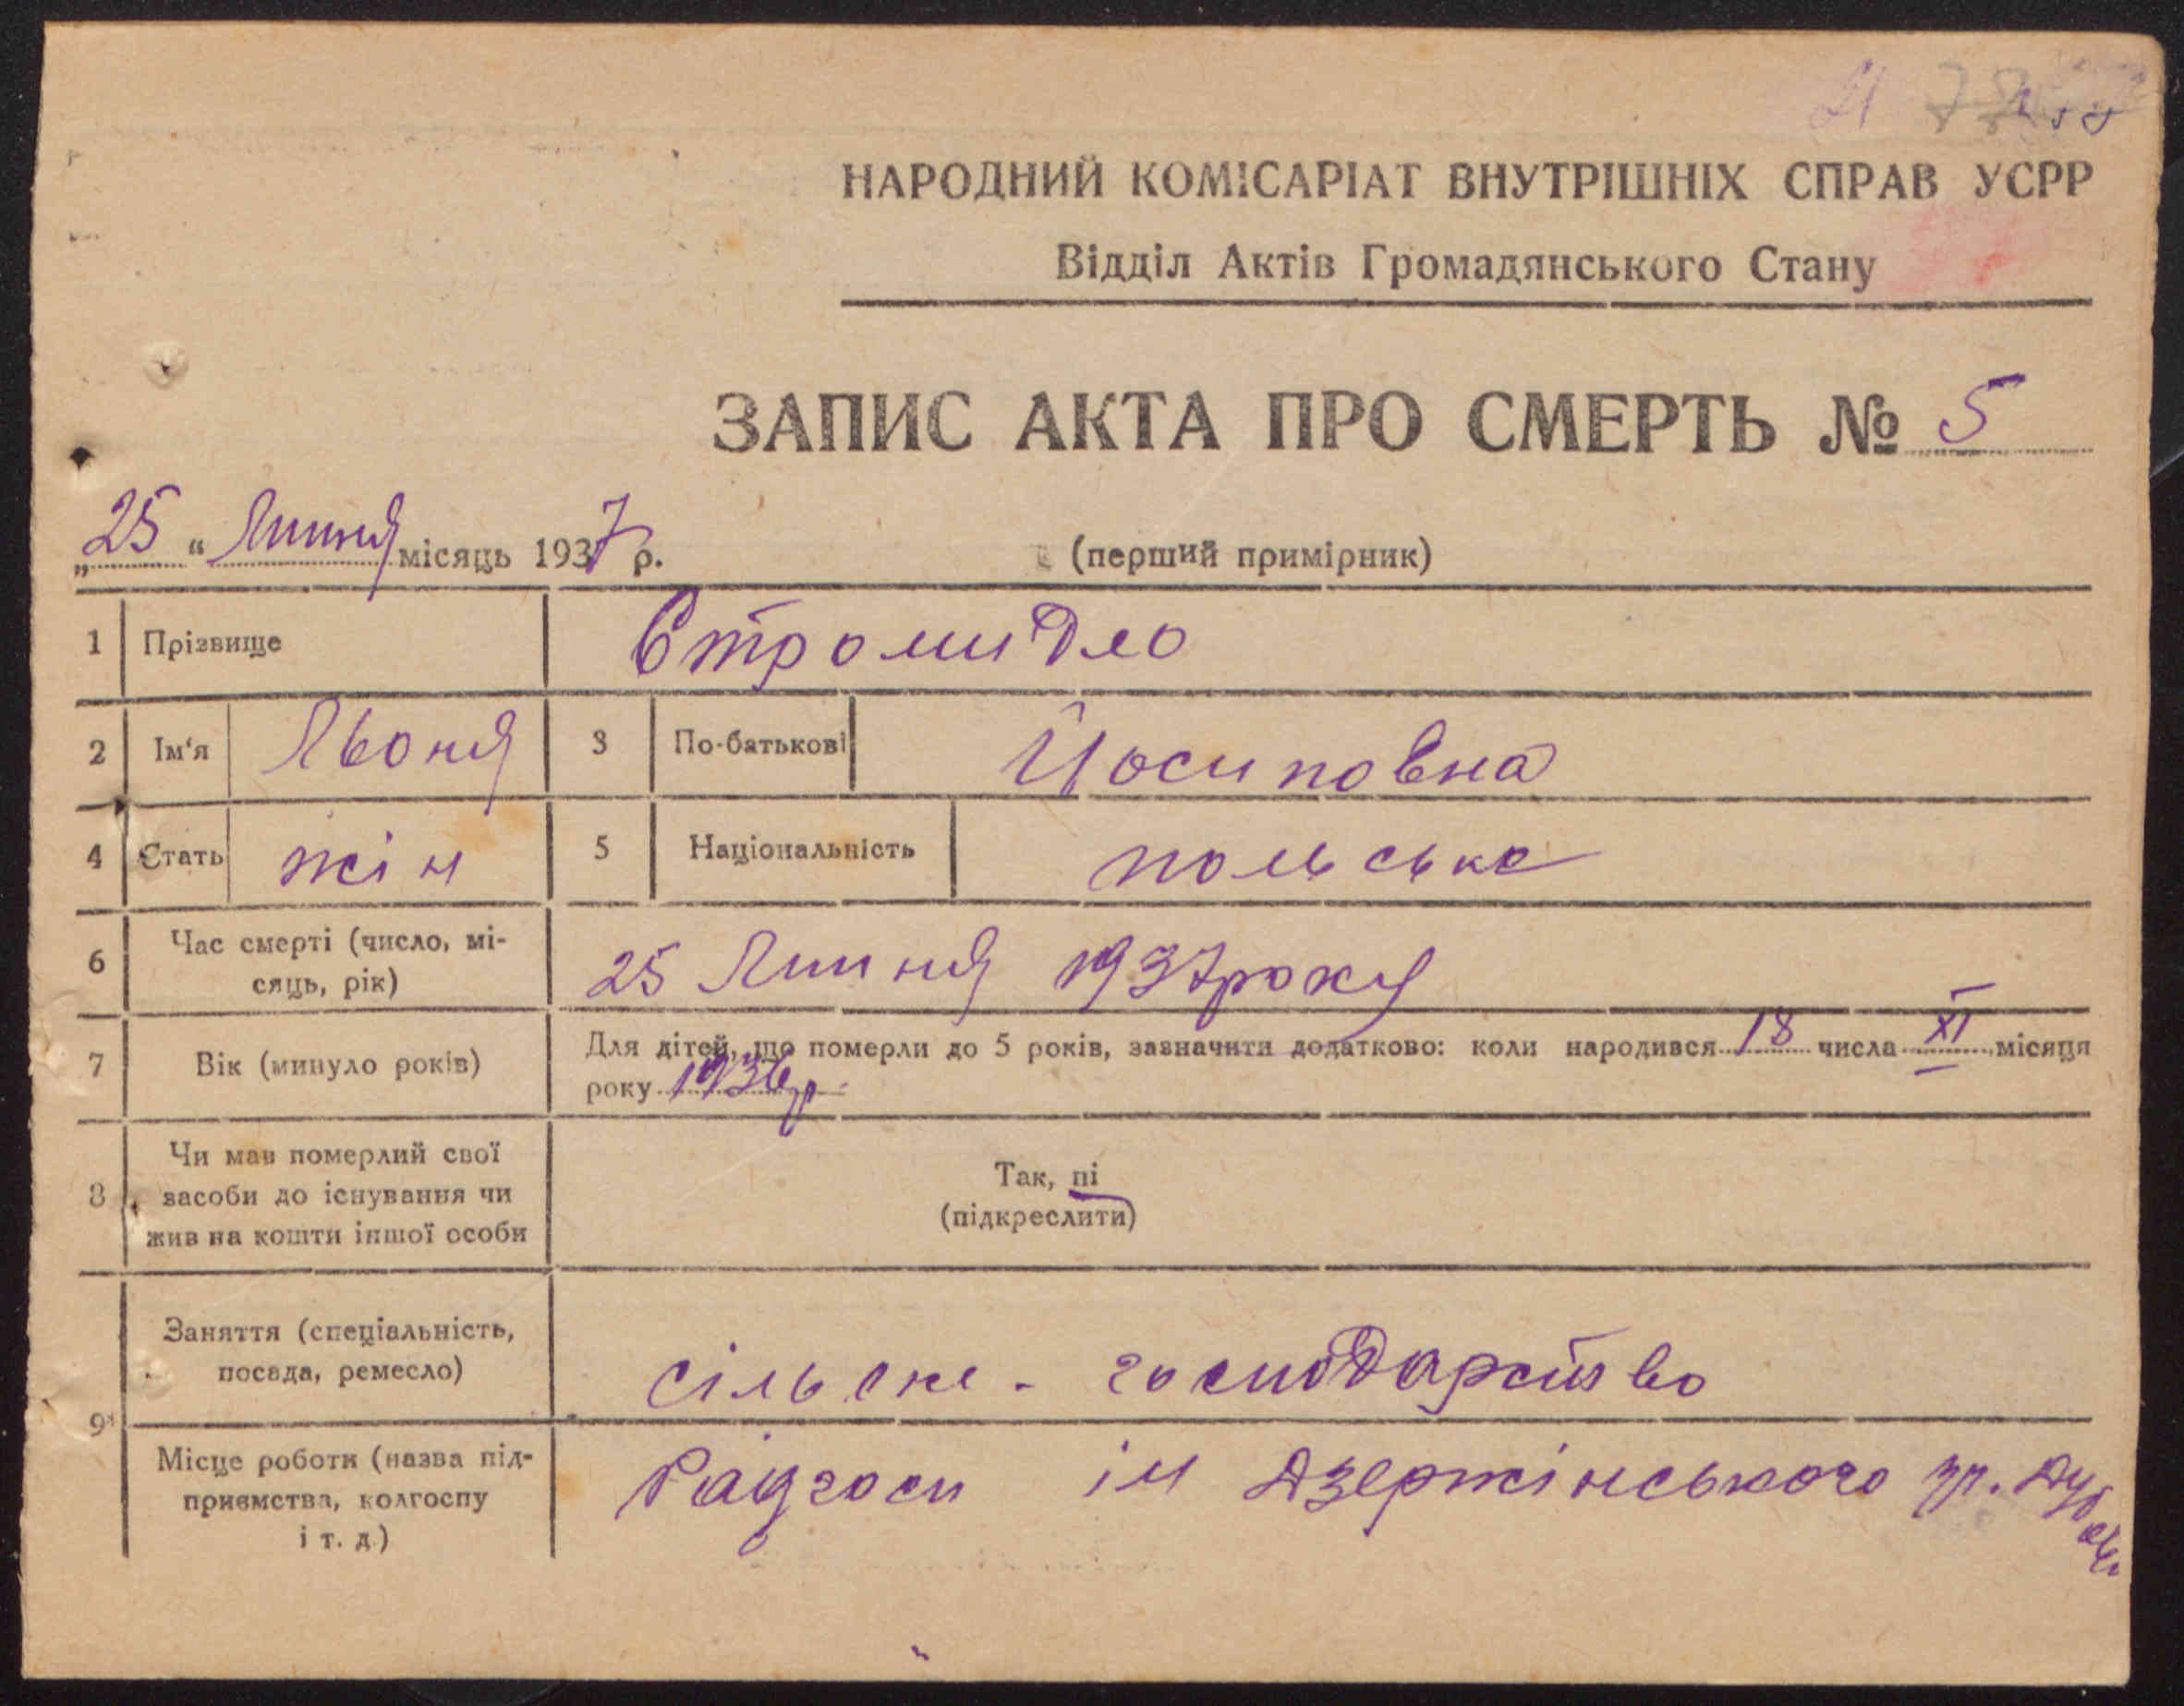 НАРОДНИЙ КОМІСАРІАТ ВНУТРІШНІХ СПРАВ УСРР
Відділ Актів Громадянського Стану
ЗАПИС АКТА ПРО СМЕРТЬ № 5
„25“ Липня місяць 1937 р. (перший примірник)
1 Прізвище Стромидло
2 Ім'я Льоня 3 По-батькові Йосиповна
4 Стать жін 5 Національність польська
6 Час смерті (число, мі-
сяць, рік) 25 Липня 1937 року
7 Вік (минуло років) Для дітей, що померли до 5 років, зазначити додатково: коли народився 18 числа XI місяця
року 1936 р
8 Чи мав померлий свої
засоби до існування чи
жив на кошти іншої особи
Так, ні
(підкреслити)
9 Заняття (спеціальність,
посада, ремесло) сільске - господарство
Місце роботи (назва під-
приємства, колгоспу
і т. д.)
Радгосп ім Дзержінського